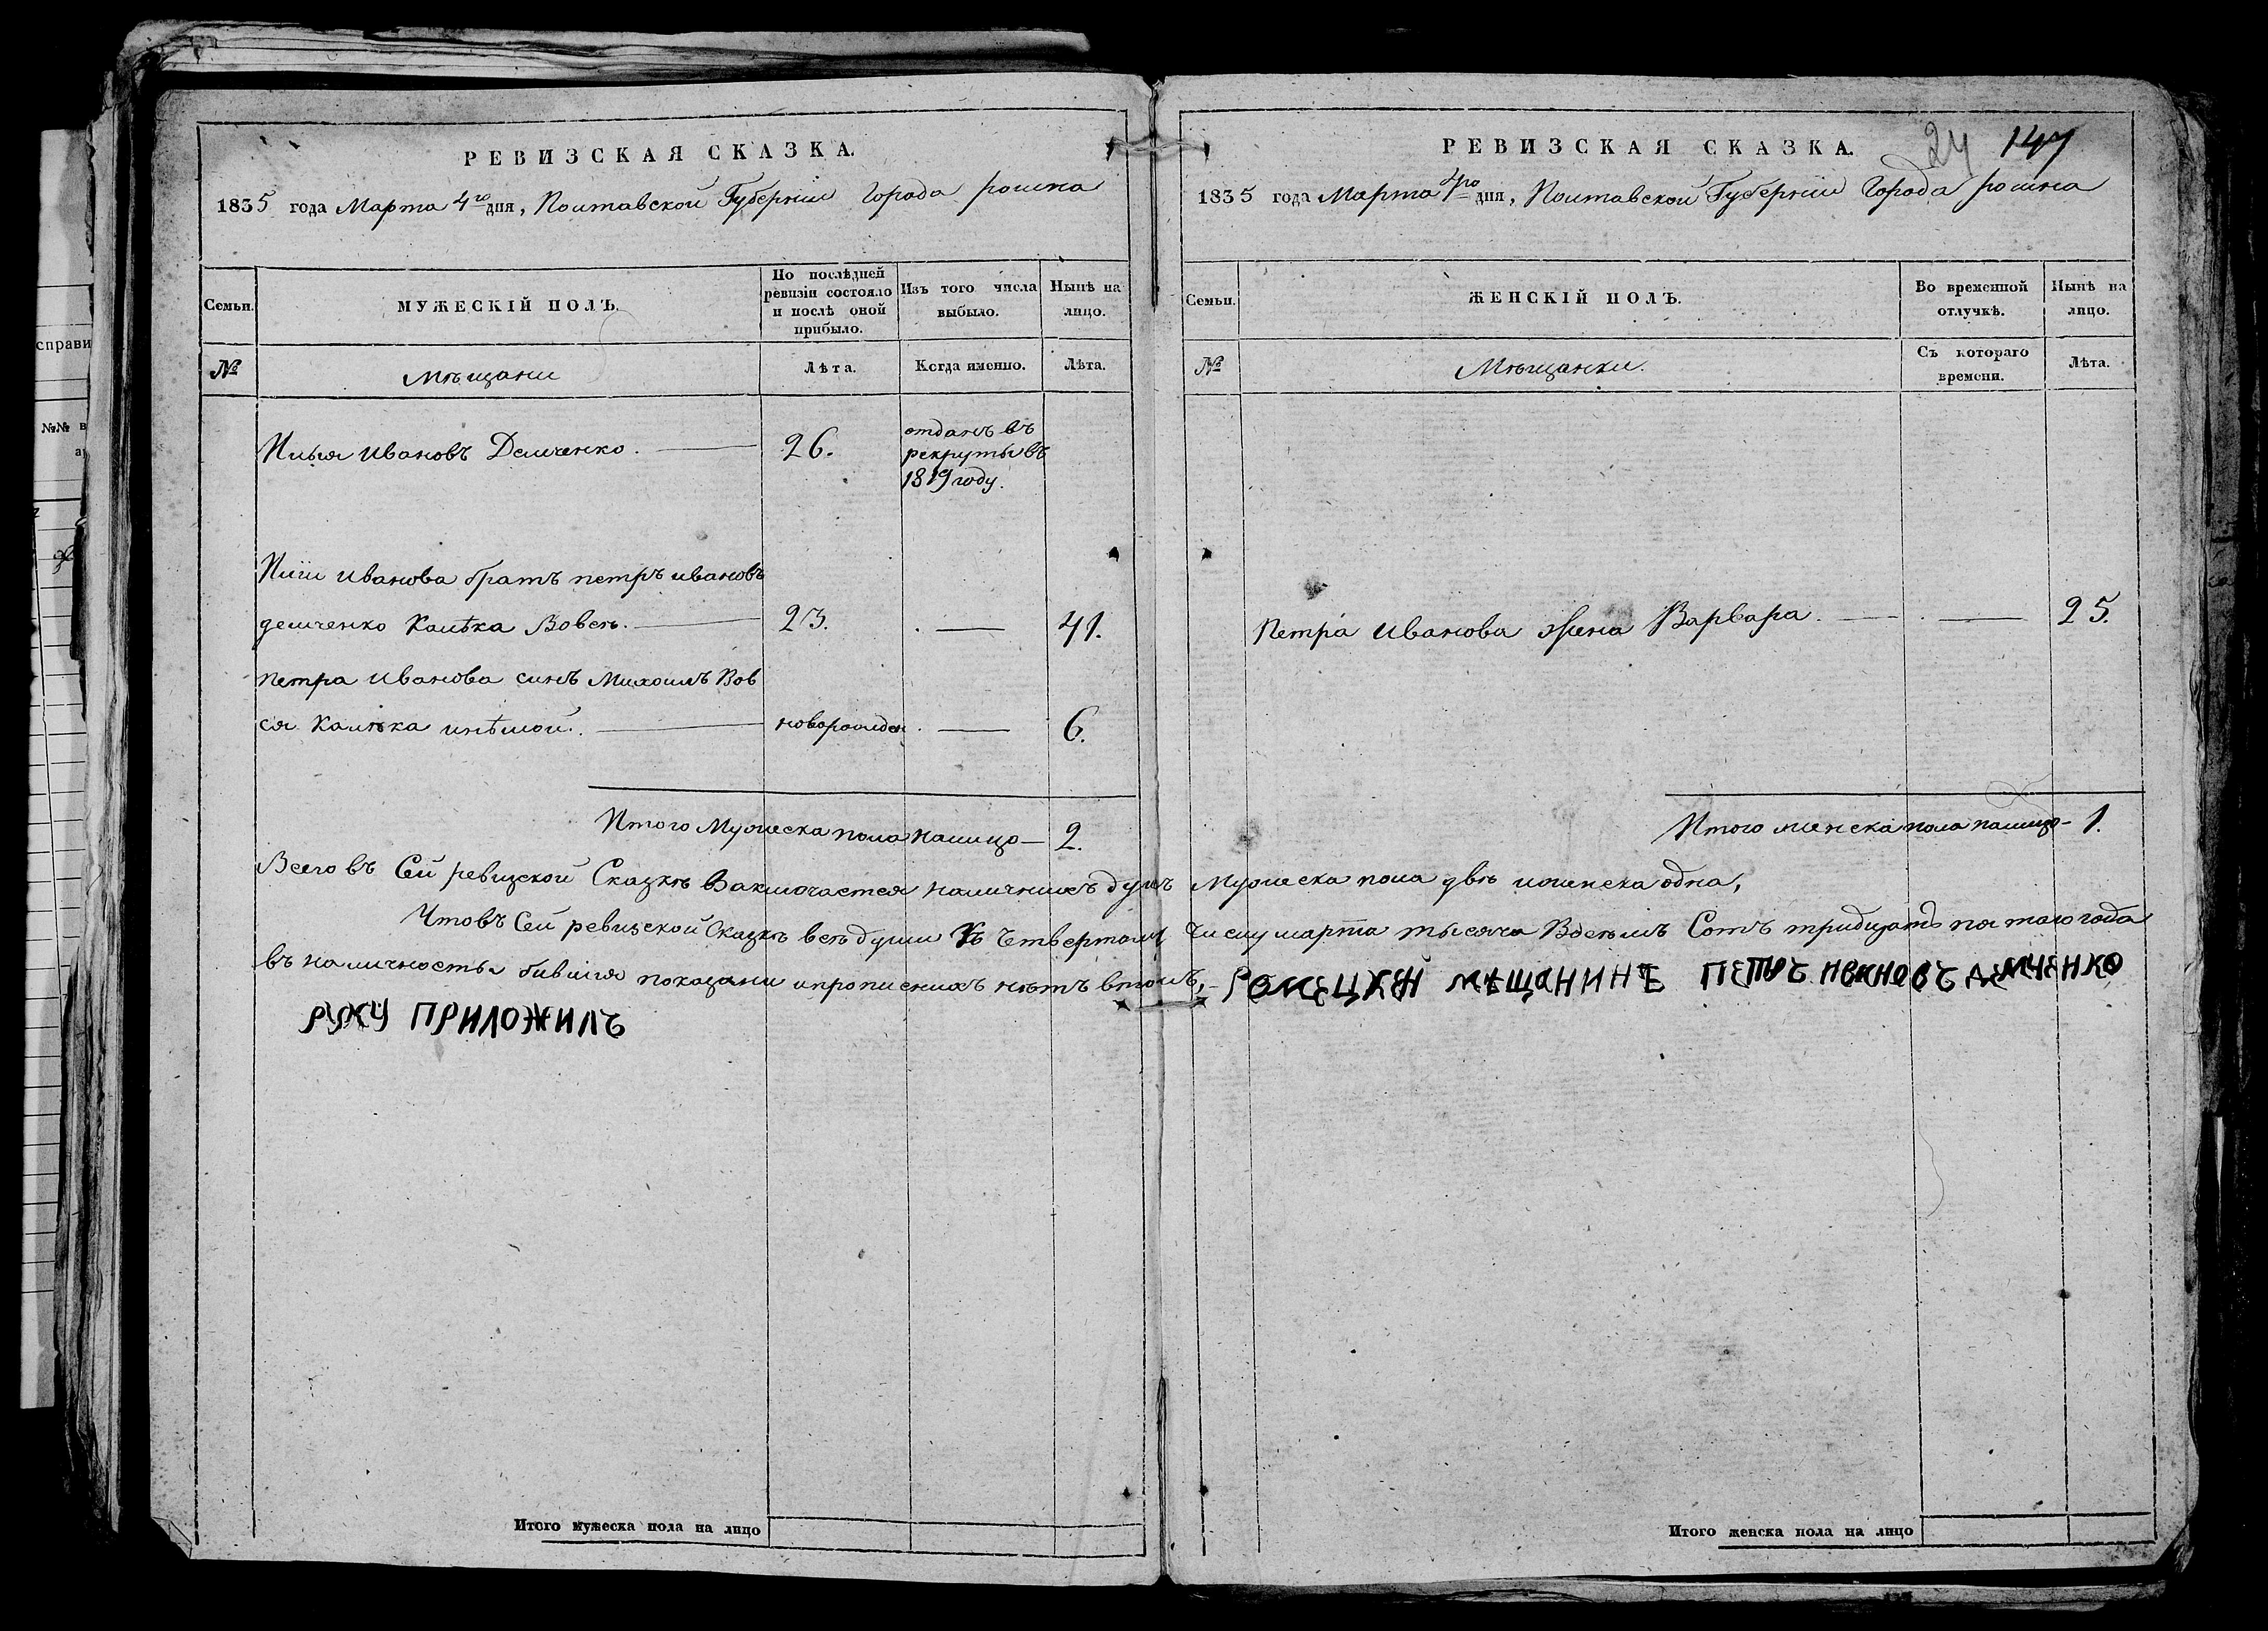 РЕВИЗСКАЯ СКАЗКА.
1835 года Марта 4го дня, Полтавской Губернiи Города ромна
Семьи.
МУЖЕСКIЙ ПОЛЪ.
По послѣдней ревизiи состояло и послѣ оной прибыло.
Изъ того числа выбыло.
Нынѣ на лицо.
№
Мѣщани
Лѣта.
Когда именно.
Лѣта.
Илья Ивановъ Демченко. 26. отданъ въ
рекруты въ
1819 году.
Илiи Иванова братъ петръ ивановъ
демченко Калѣка Вовсѣ. 23. — 41.
петра Иванова синъ Михаилъ Вов
ся Калѣка инѣмой. новорожден. — 6.
Итого Мужеска пола налицо — 2.
РЕВИЗСКАЯ СКАЗКА.
24 147
1835 года Марта 4го дня, Полтавской Губернiи Города ромна
Семьи.
ЖЕНСКIЙ ПОЛЪ.
Во временной отлучкѣ.
Нынѣ на лицо.
№
Мѣщанки.
Съ котораго времени.
Лѣта.
Петра Иванова жена Варвара. — 25.
Итого женска пола налицо — 1.
Всего въ Сей ревизской Сказкѣ Заключается наличнихъ душъ Мужеска пола двѣ иженска одна,
Что въ Сей ревизской Сказкѣ всѣ души Къ Четвертому Числу марта тысяча Восѣмъ Сотъ тридцать пятаго года
въ наличность бившiя показани ипрописнихъ нѣтъ втомъ, – РОМЕЦКЕЙ МѢЩАНИНЕ ПЕТРЪ ИВАНОВЪ ДЕМЧЕНКО
РУКУ ПРИЛОЖИЛЪ
Итого мужеска пола на лицо
Итого женска пола на лицо